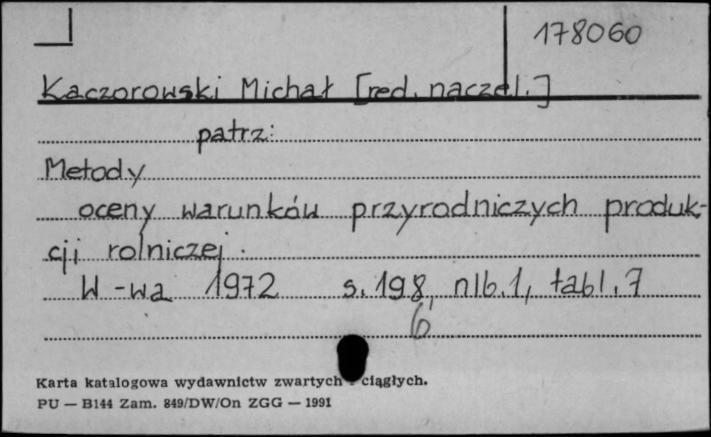 178060
Kaczorowski Michał [red. naczel.]
patrz:
Metody
oceny warunków przyrodniczych produk-
cji rolniczej.
W-wa 1972 s. 198, nlb. 1, tabl. 7
6
Karta katalogowa wydawnictw zwartych i ciągłych.
PU — B144 Zam. 849/DW/On ZGG — 1991